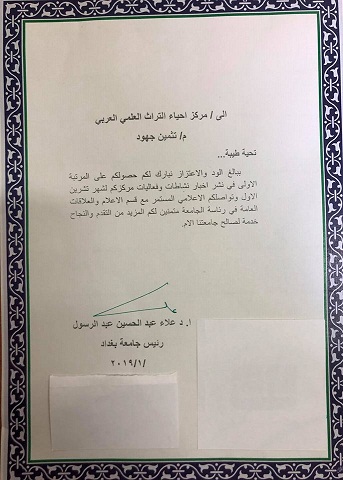 الى / مركز احياء التراث العلمي العربي
م/ تثمين جهود
تحية طيبة...
ببالغ الود والاعتزاز نبارك لكم حصولكم على المرتبة
الاولى في نشر اخبار نشاطات وفعاليات مركزكم لشهر تشرين
الاول وتواصلكم الاعلامي المستمر مع قسم الاعلام والعلاقات
العامة في رئاسة الجامعة متمنين لكم المزيد من التقدم والنجاح
خدمة لصالح جامعتنا الام.
ا. د علاء عبد الحسين عبد الرسول
رئيس جامعة بغداد
/٢٠١٩/١